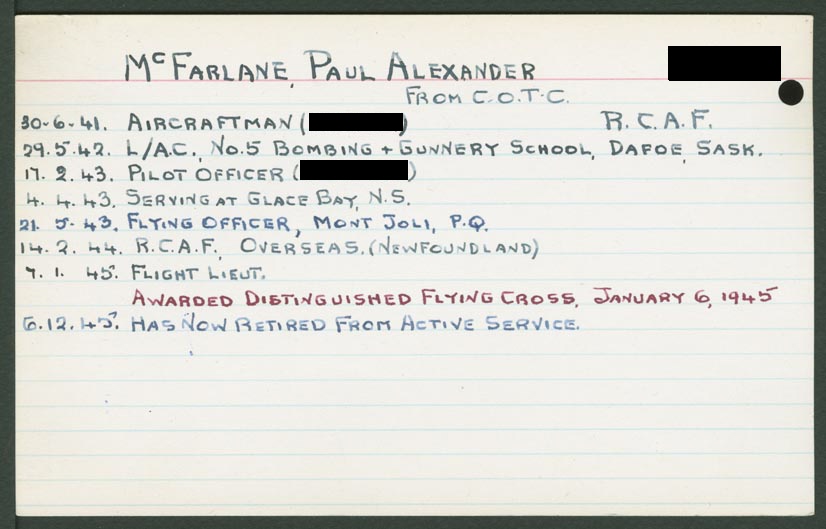 McFARLANE, PAUL ALEXANDER
FROM C.O.T.C.
30-6-41. AIRCRAFTMAN ( ) R.C.A.F.
29.5.42. L/A.C., No.5 BOMBING + GUNNERY SCHOOL, DAFOE, SASK.
17. 2. 43. PILOT OFFICER ( )
4. 4. 43. SERVING AT GLACE BAY, N.S.
21. 5. 43. FLYING OFFICER, MONT JOLI, P.Q.
14. 2. 44. R.C.A.F., OVERSEAS. (NEWFOUNDLAND)
7. 1. 45. FLIGHT LIEUT.
AWARDED DISTINGUISHED FLYING CROSS, JANUARY 6, 1945
6.12.45. HAS NOW RETIRED FROM ACTIVE SERVICE.